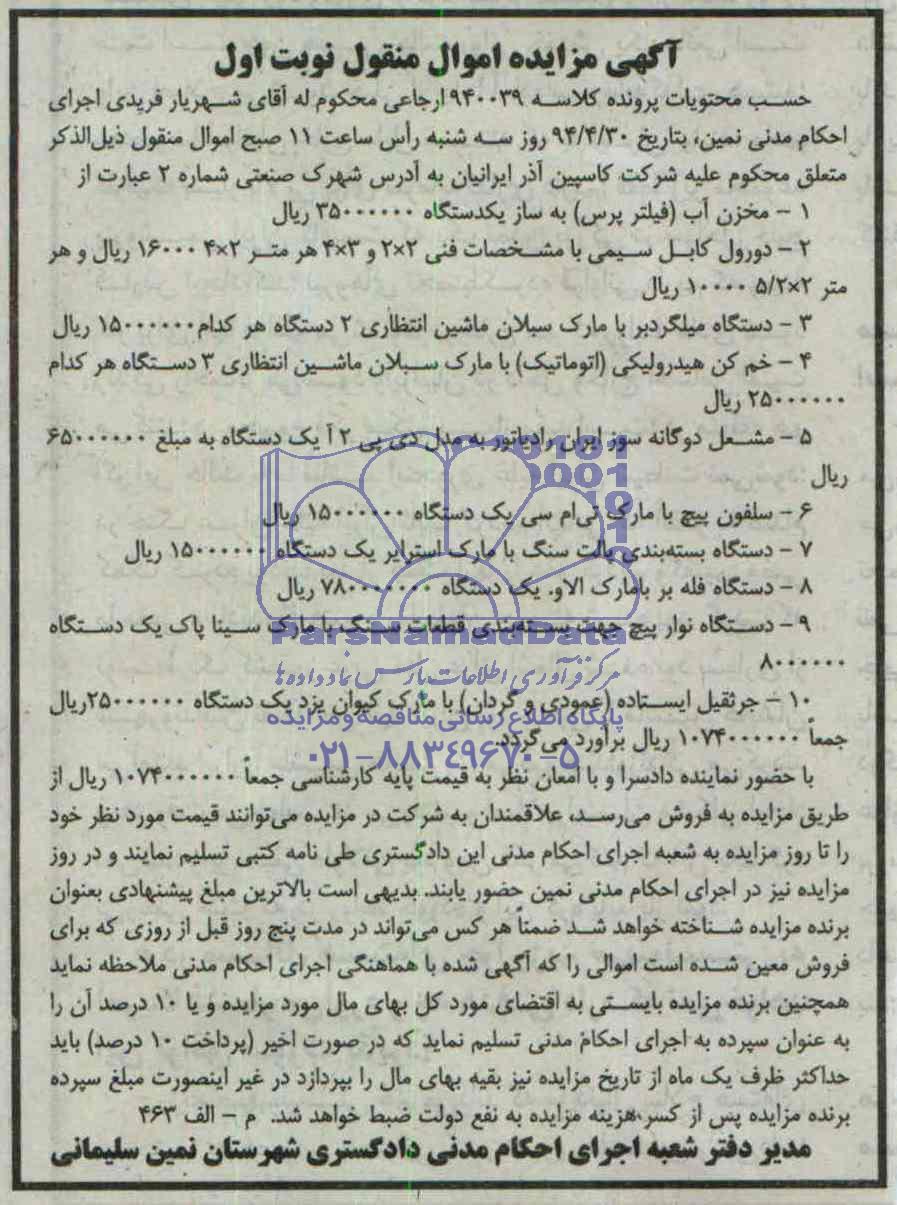 آگهی مزایده اموال منقول نوبت اول
حسب محتویات پرونده کلاسه ۹۴۰۰۳۹ ارجاعی محکوم له آقای شهریار فریدی اجرای
احکام مدنی نمین، بتاریخ ۹۴/۴/۳۰ روز سه شنبه رأس ساعت ۱۱ صبح اموال منقول ذیل‌الذکر
متعلق محکوم علیه شرکت کاسپین آذر ایرانیان به آدرس شهرک صنعتی شماره ۲ عبارت از
۱ – مخزن آب (فیلتر پرس) به ساز یکدستگاه ۳۵۰۰۰۰۰۰ ریال
۲ – دورول کابل سیمی با مشخصات فنی ۲×۲ و ۳×۴ هر متر ۲×۴ ۱۶۰۰۰ ریال و هر
متر ۲×۵/۲ ۱۰۰۰۰ ریال
۳ – دستگاه میلگردبر با مارک سبلان ماشین انتظاری ۲ دستگاه هر کدام ۱۵۰۰۰۰۰۰ ریال
۴ – خم کن هیدرولیکی (اتوماتیک) با مارک سبلان ماشین انتظاری ۳ دستگاه هر کدام
۲۵۰۰۰۰۰۰ ریال
۵ – مشعل دوگانه سوز ایران رادیاتور به مدل دی پی ۲ آ یک دستگاه به مبلغ ۶۵۰۰۰۰۰۰
ریال
۶ – سلفون پیچ با مارک تی‌ام سی یک دستگاه ۱۵۰۰۰۰۰۰ ریال
۷ – دستگاه بسته‌بندی پالت سنگ با مارک استرایر یک دستگاه ۱۵۰۰۰۰۰۰ ریال
۸ – دستگاه قله بر بامارک الاو. یک دستگاه ۷۸۰۰۰۰۰۰۰ ریال
۹ – دستگاه نوار پیچ جهت بسته‌بندی قطعات سنگ با مارک سینا پاک یک دستگاه
۸۰۰۰۰۰۰
ParsNamadData
مرکز فرآوری اطلاعات پارس نماد داده ها
۱۰ – جرثقیل ایستاده (عمودی و گردان) با مارک کیوان یزد یک دستگاه ۲۵۰۰۰۰۰۰ریال
پایگاه اطلاع رسانی مناقصه و مزایده
جمعاً ۱۰۷۴۰۰۰۰۰۰ ریال برآورد می‌گردد.
۰۲۱–۸۸۳۴۹۶۷۰–۵
با حضور نماینده دادسرا و با امعان نظر به قیمت پایه کارشناسی جمعاً ۱۰۷۴۰۰۰۰۰۰ ریال از
طریق مزایده به فروش می‌رسد، علاقمندان به شرکت در مزایده می‌توانند قیمت مورد نظر خود
را تا روز مزایده به شعبه اجرای احکام مدنی این دادگستری طی نامه کتبی تسلیم نمایند و در روز
مزایده نیز در اجرای احکام مدنی نمین حضور یابند. بدیهی است بالاترین مبلغ پیشنهادی بعنوان
برنده مزایده شناخته خواهد شد ضمناً هر کس می‌تواند در مدت پنج روز قبل از روزی که برای
فروش معین شده است اموالی را که آگهی شده با هماهنگی اجرای احکام مدنی ملاحظه نماید
همچنین برنده مزایده بایستی به اقتضای مورد کل بهای مال مورد مزایده و یا ۱۰ درصد آن را
به عنوان سپرده به اجرای احکام مدنی تسلیم نماید که در صورت اخیر (پرداخت ۱۰ درصد) باید
حداکثر ظرف یک ماه از تاریخ مزایده نیز بقیه بهای مال را بپردازد در غیر اینصورت مبلغ سپرده
برنده مزایده پس از کسر هزینه مزایده به نفع دولت ضبط خواهد شد. م – الف ۴۶۳
مدیر دفتر شعبه اجرای احکام مدنی دادگستری شهرستان نمین سلیمانی